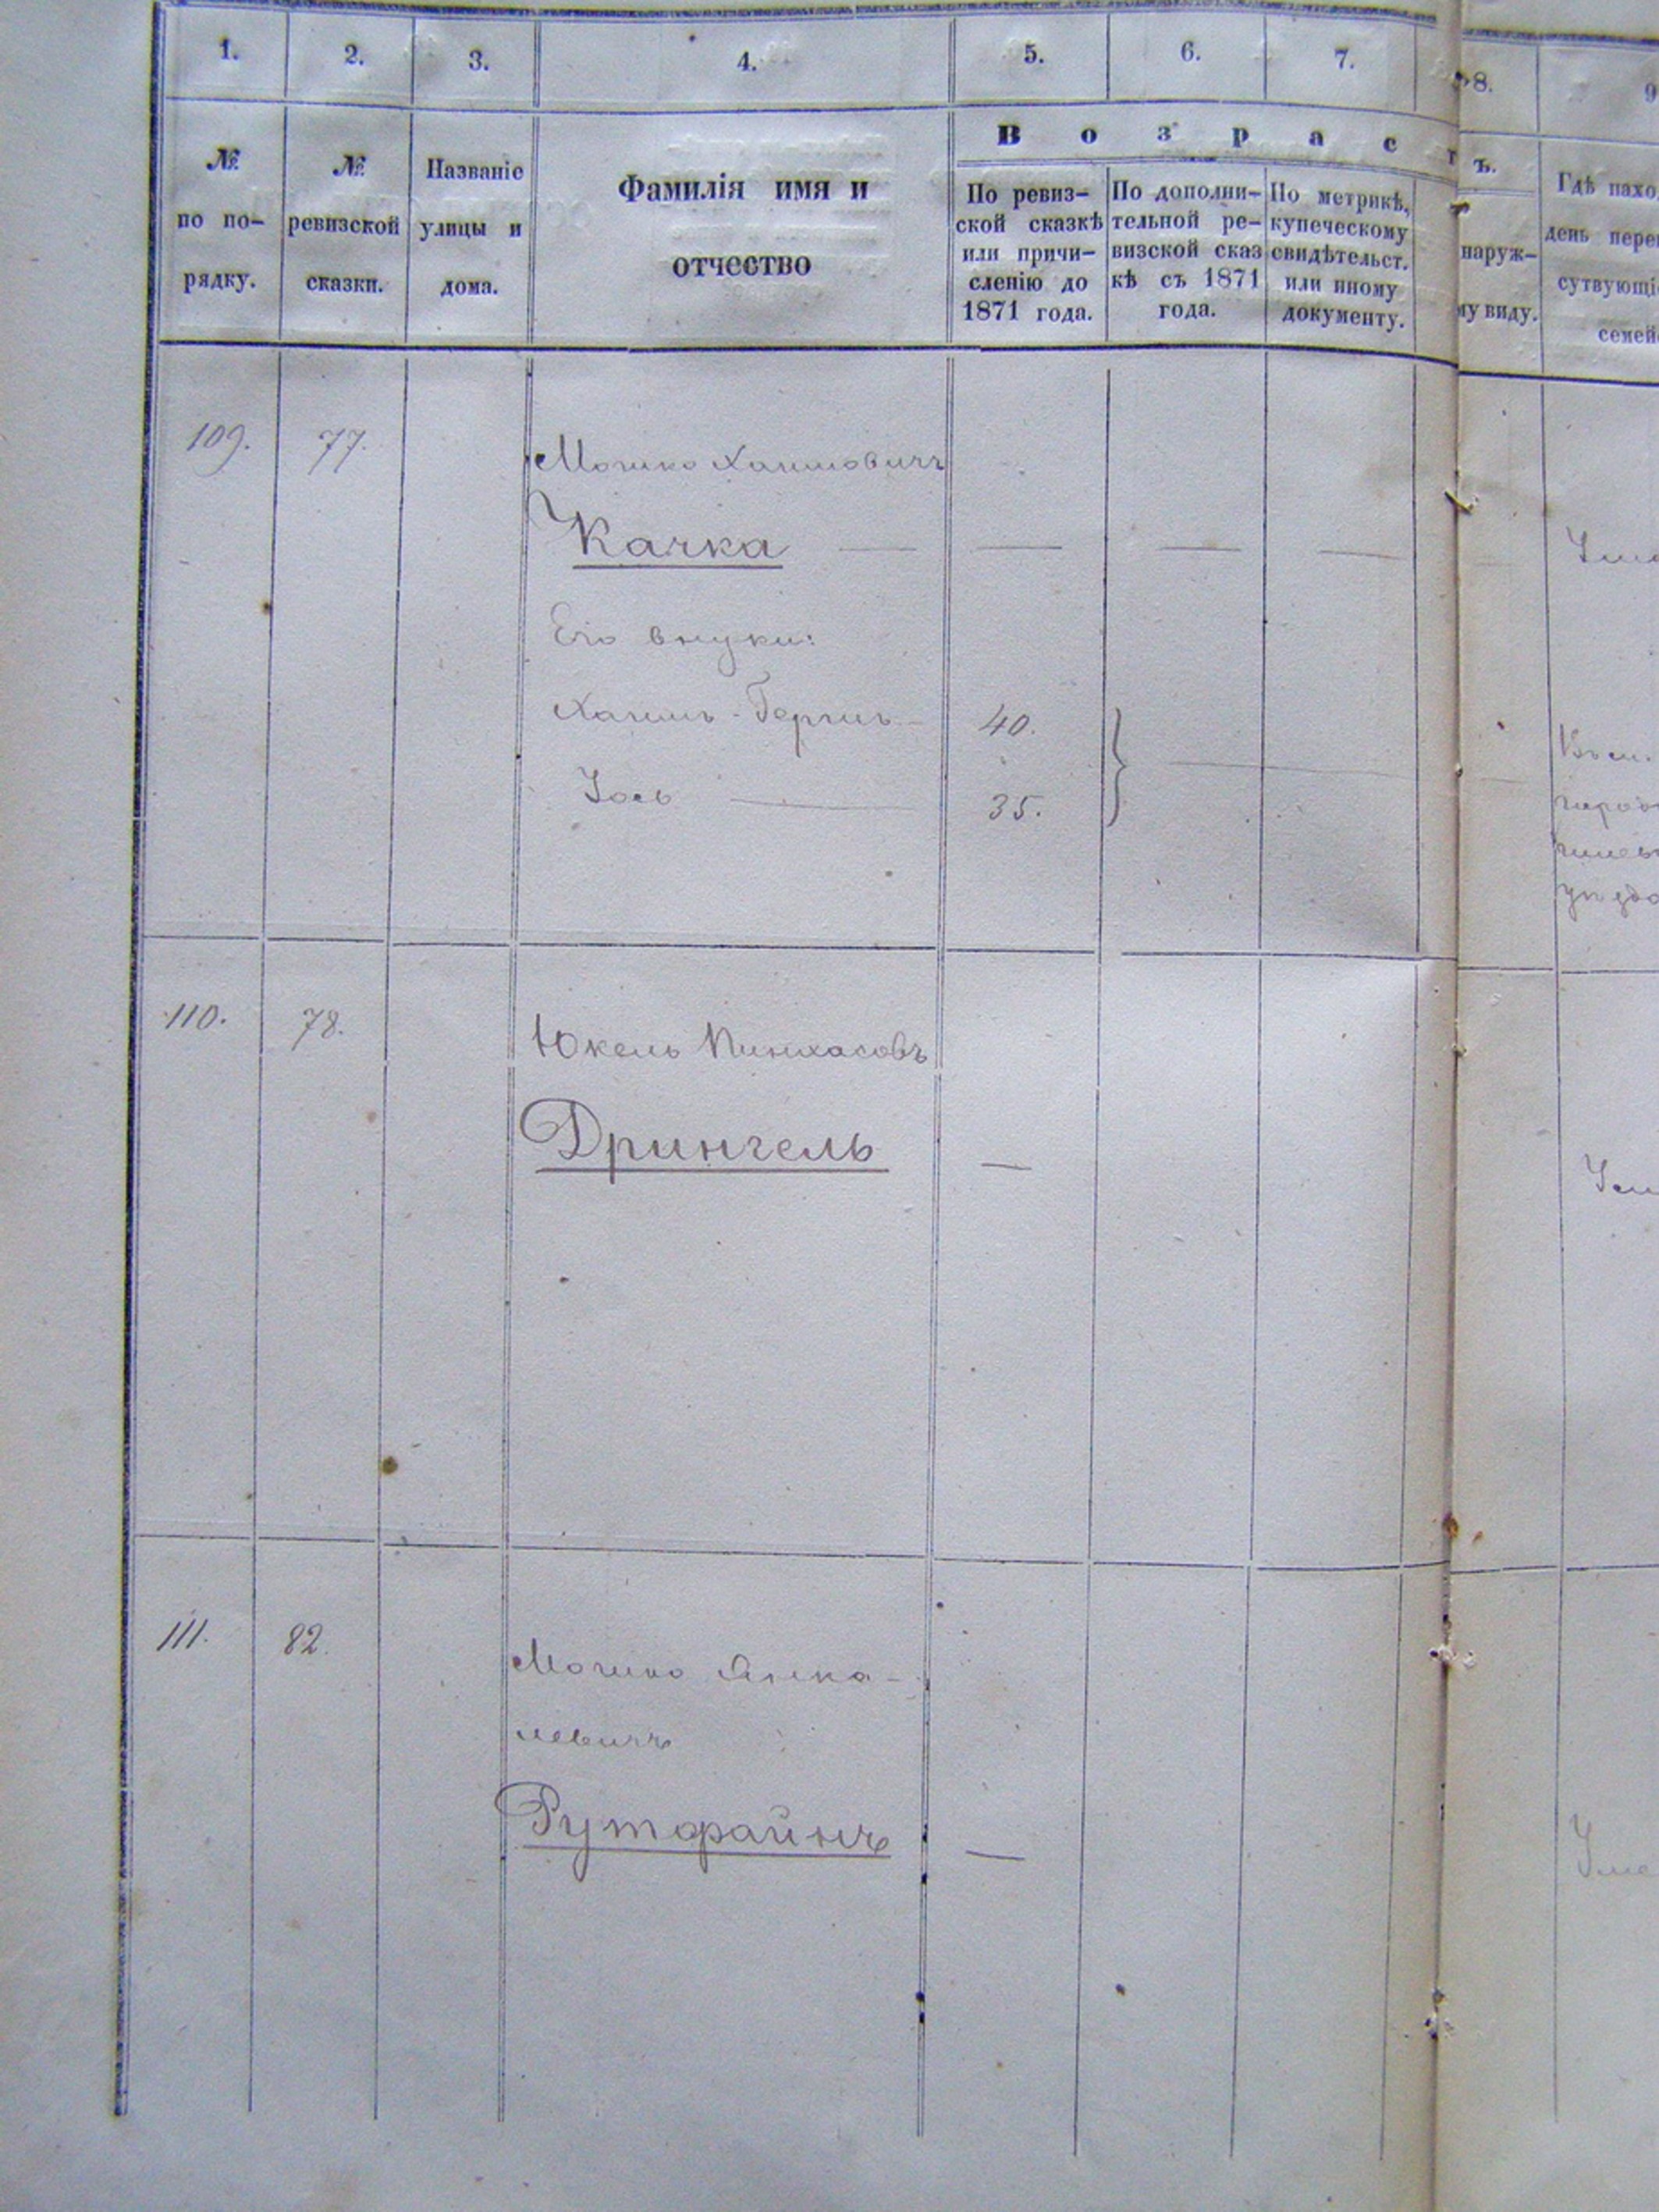 1. 2. 3. 4. 5. 6. 7. 8. 9
№ по по-рядку.
№ ревизской сказки.
Названіе улицы и дома.
Фамилія имя и
отчество
Возрастъ.
По ревиз-
ской сказкѣ
или причи-
сленію до
1871 года.
По дополни-
тельной ре-
визской сказ
кѣ съ 1871
года.
По метрикѣ,
купеческому
свидѣтельст.
или иному
документу.
наруж-
му виду.
Гдѣ нахо
день пере
сутвующі
семей
109. 77. Мошко Хаимовичъ
Качка — — — —
Его внуки:
Хаимъ-Гершъ — 40.
Іось — 35.
110. 78. Юкель Пинхасовъ
Дрингель —
111. 82. Мошко Янке-
левичъ
Рутфайнъ —